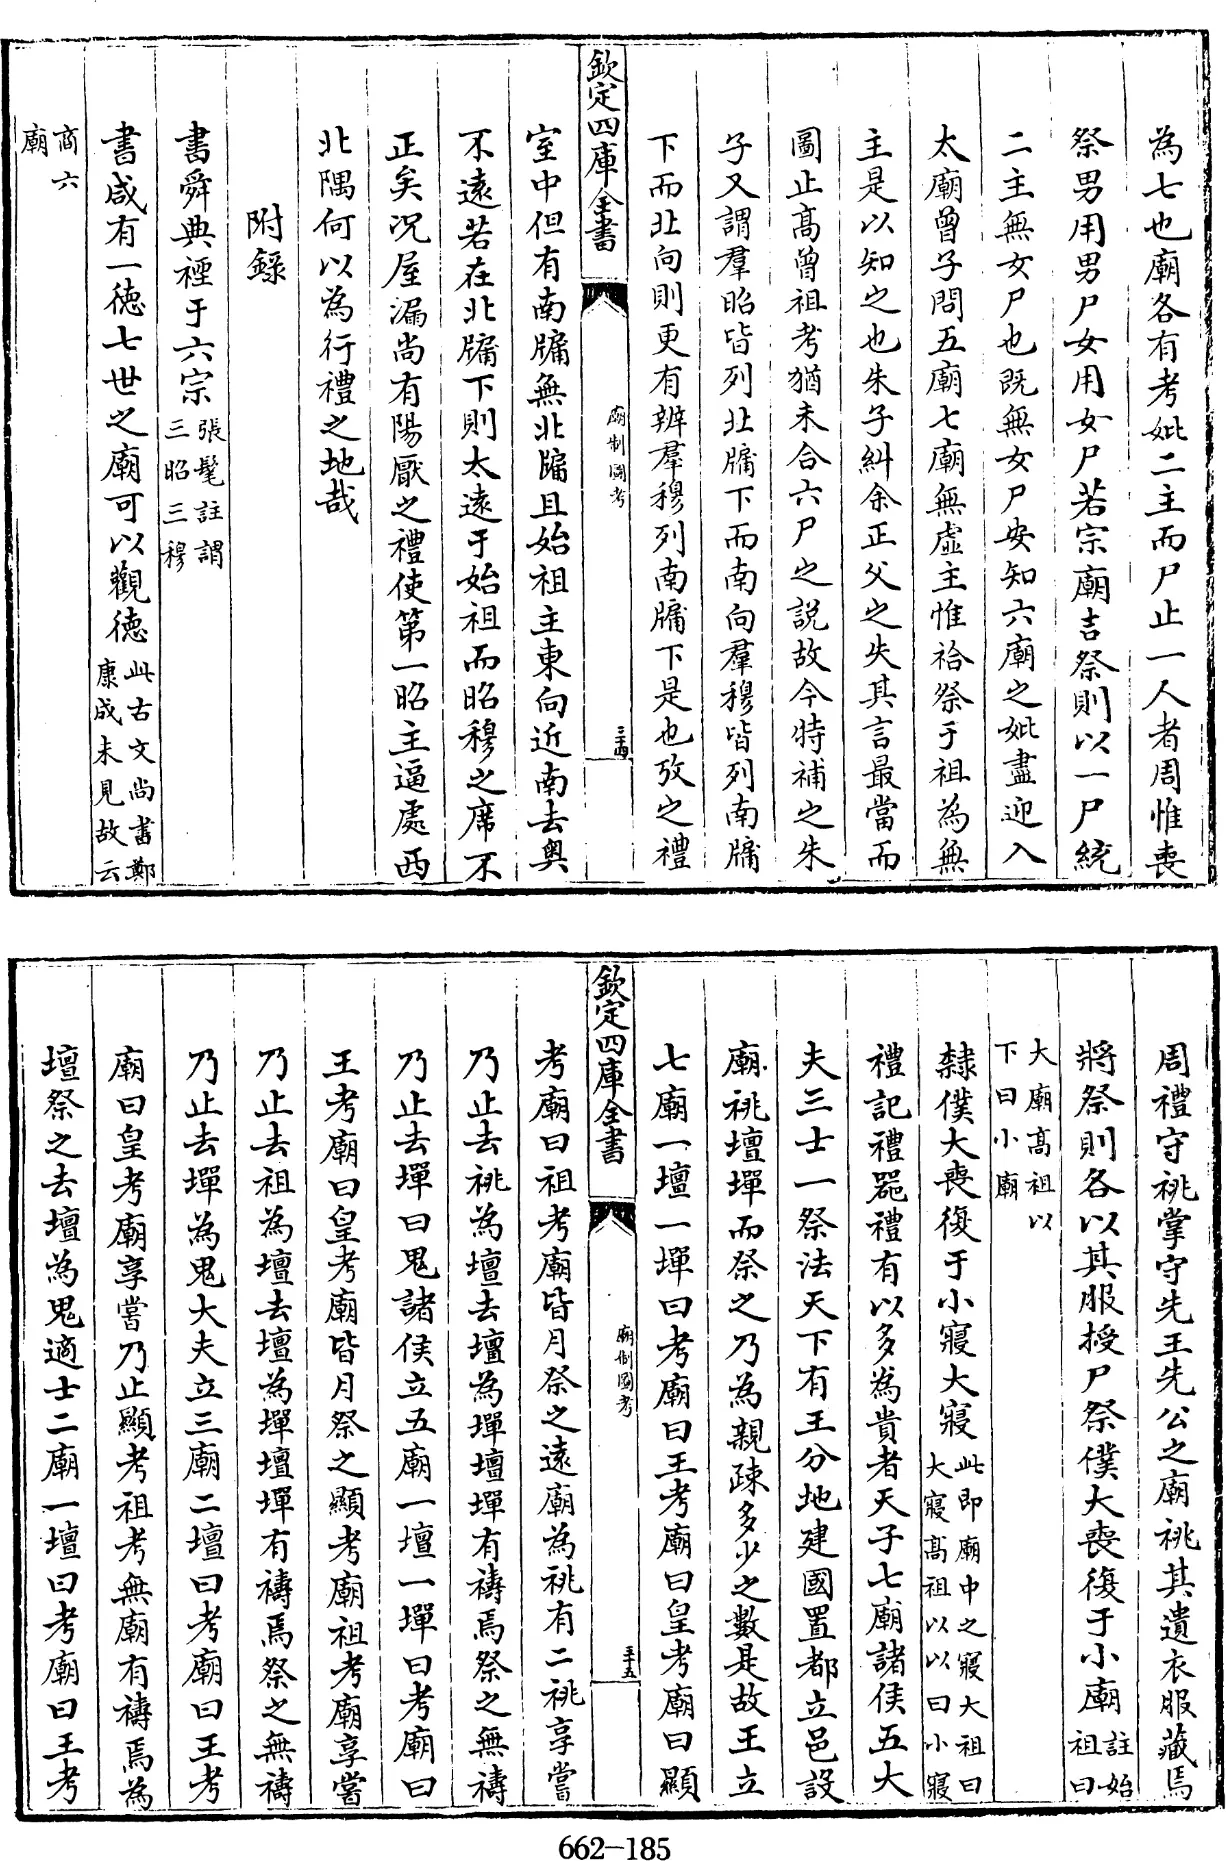 為七也廟各有考妣二主而尸止一人者周惟喪
祭男用男尸女用女尸若宗廟吉祭則以一尸統
二主無女尸也既無女尸安知六廟之妣盡迎入
太廟曾子問五廟七廟無虛主惟祫祭于祖為無
主是以知之也朱子糾余正父之失其言最當而
圖止髙曾祖考猶未合六尸之説故今特補之朱
子又謂羣昭皆列北牖下而南向羣穆皆列南牖
下而北向則更有辨羣穆列南牖下是也攷之禮
欽定四庫全書
廟制圖考
三十四
室中但有南牖無北牖且始祖主東向近南去奥
不遠若在北牖下則太遠于始祖而昭穆之席不
正矣况屋漏尚有陽厭之禮使第一昭主逼處西
北隅何以為行禮之地哉
附錄
書舜典禋于六宗張髦註謂
三昭三穆
書咸有一徳七世之廟可以觀徳此古文尚書鄭
康成未見故云
商六
廟
周禮守祧掌守先王先公之廟祧其遺衣服藏焉
將祭則各以其服授尸祭僕大喪復于小廟註始
祖曰
大廟髙祖以
下曰小廟
隸僕大喪復于小寢大寢此即廟中之寢大祖曰
大寢髙祖以以曰小寢
禮記禮器禮有以多為貴者天子七廟諸侯五大
夫三士一祭法天下有王分地建國置都立邑設
廟祧壇墠而祭之乃為親疎多少之數是故王立
七廟一壇一墠曰考廟曰王考廟曰皇考廟曰顯
欽定四庫全書
廟制圖考
三十五
考廟曰祖考廟皆月祭之遠廟為祧有二祧享嘗
乃止去祧為壇去壇為墠壇墠有禱焉祭之無禱
乃止去墠曰鬼諸侯立五廟一壇一墠曰考廟曰
王考廟曰皇考廟皆月祭之顯考廟祖考廟享嘗
乃止去祖為壇去壇為墠壇墠有禱焉祭之無禱
乃止去墠為鬼大夫立三廟二壇曰考廟曰王考
廟曰皇考廟享嘗乃止顯考祖考無廟有禱焉為
壇祭之去壇為鬼適士二廟一壇曰考廟曰王考
662-185